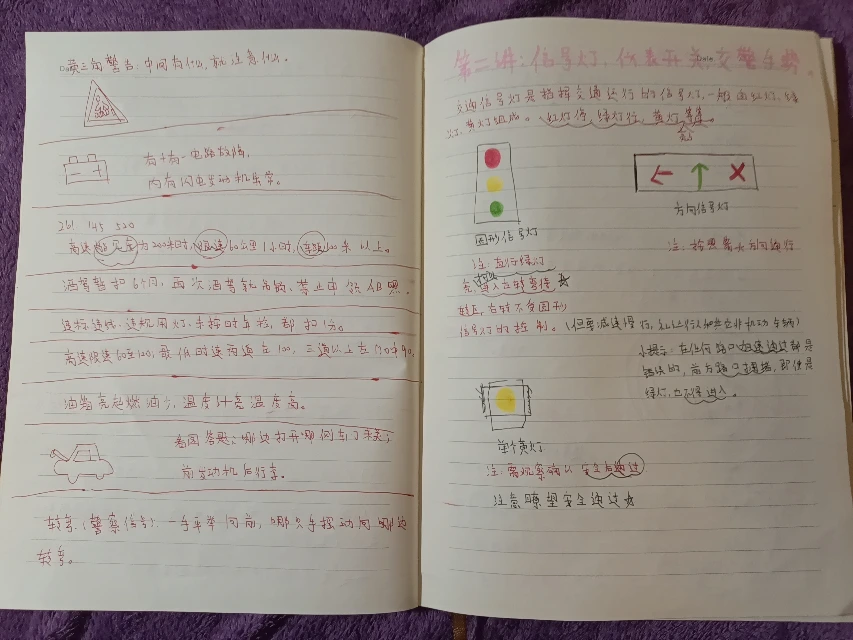 黄三角警告:中间有什么,就注意什么。
有+有-电路故障,
内有闪电发动机异常。
261 145 520
高速能见度为200米时,限速60公里1小时,车距100米以上。
酒驾暂扣6个月,再次酒驾就吊销、禁止申领
违标违线、违规用灯、未按时年检,都扣1分。
高速限速60至120,最低时速两道左100,三道以上左110中90。
油箱亮起燃油少,温度计亮温度高。
看图答题:哪边打开哪何车门未关;
前发动机后行李。
转弯(警察信号):一手平举向前,哪只手摆动向哪边
转弯。
第二讲:信号灯,仪表开关,交警手势
交通信号灯是指挥交通运行的信号灯,一般由红灯、绿
灯、黄灯组成。红灯停,绿灯行,黄灯等等
圆形信号灯
方向信号灯
注:直行绿灯
注:按照箭头方向通行
进入左转弯待
转区,右转不受圆形
信号灯的控制。(但要减速慢行,
小提示:在任何路口加速通过都是
错误的,前方路口拥堵,即使是
绿灯,也不得进入。
单个黄灯
注:需观察确认安全后通过
注意瞭望安全通过☆